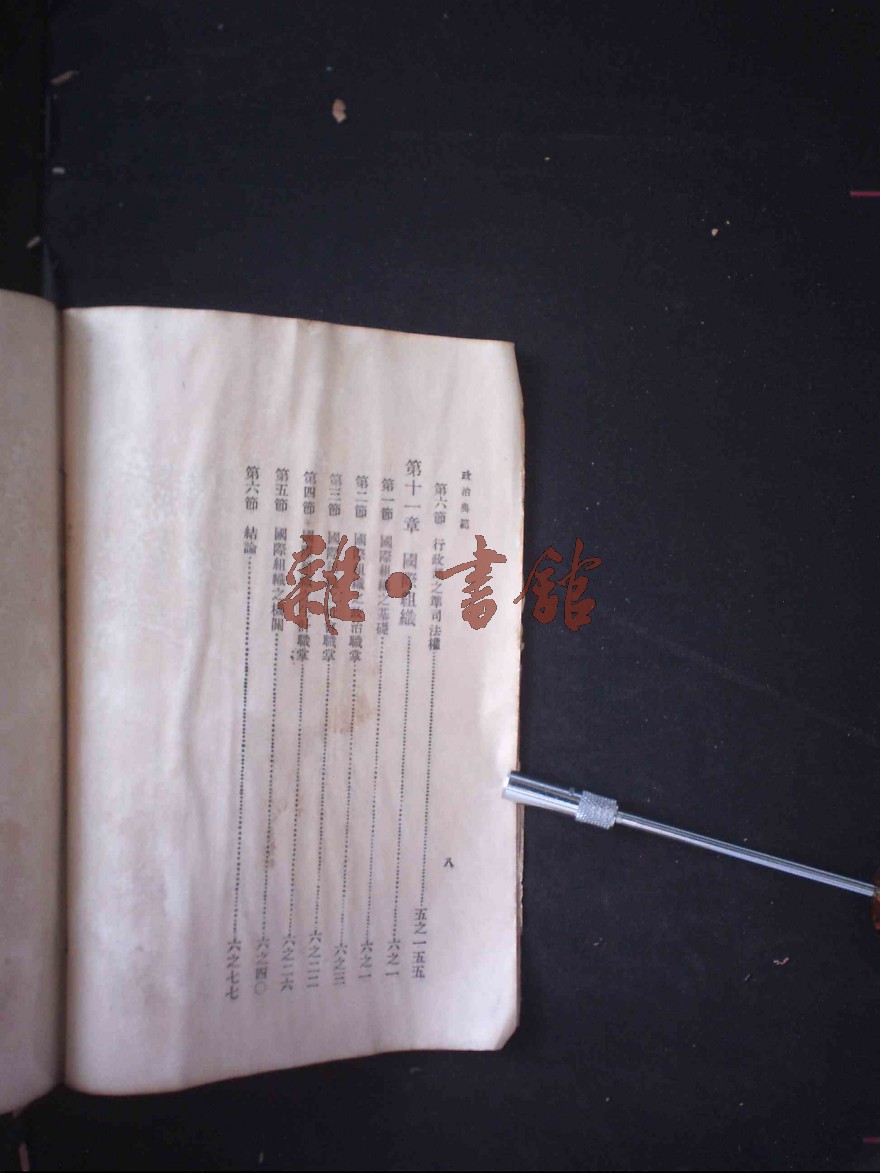 政治典範
八
第六節 行政之準司法權……五之一五五
第十一章 國際組織……六之一
第一節 國際組織之基礎……六之一
第二節 國際組織之政治職掌……六之三
第三節 國際職掌……六之二二
第四節 職掌……六之二六
第五節 國際組織之機關……六之四〇
第六節 結論……六之七七
雜·書館